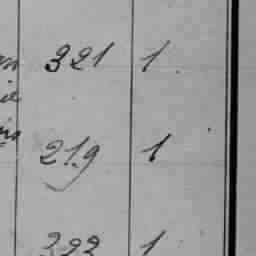 321 1
219 1
323 1